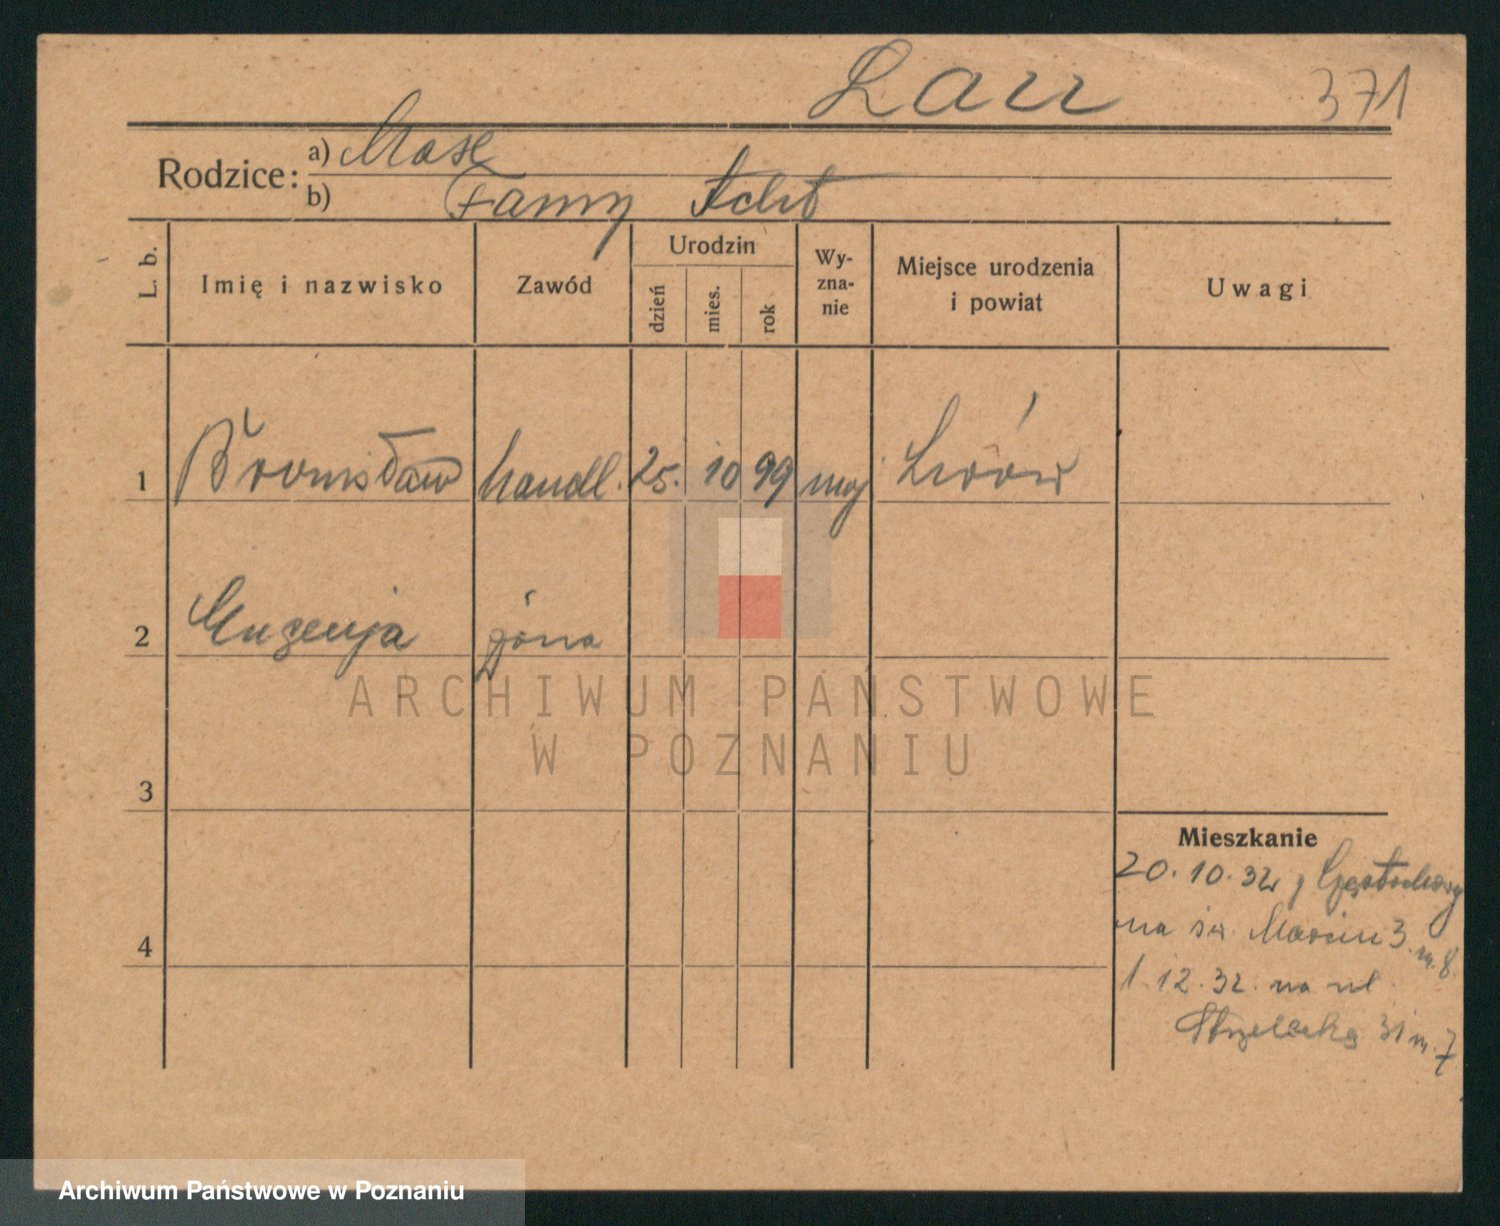 Larr 371
Rodzice: a) Mose
b) Fanny Acht
L. b. Imię i nazwisko Zawód Urodzin dzień mies. rok Wy-zna-nie Miejsce urodzenia i powiat Uwagi
1 Bronisław handl. 25. 10 99 moj Lwów
2 Eugenja żona
ARCHIWUM PAŃSTWOWE
W POZNANIU
3
Mieszkanie
20.10.32 z Częstochowy
na św. Marcin 3 m. 8.
4
1.12.32. na ul.
Strzelecką 31 m. 7
Archiwum Państwowe w Poznaniu